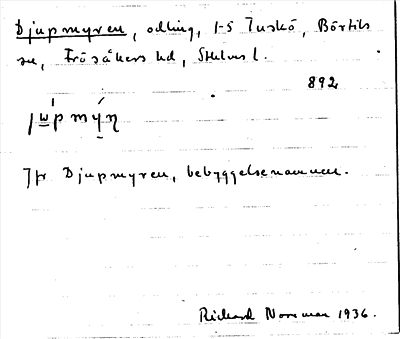 Djupmyren, odling, 1-5 Tuskö, Börstils
sn, Frösåkers hd, Sthlms l.
892
Jfr Djupmyren, bebyggelsenamnen.
Rickard Norsman 1936.